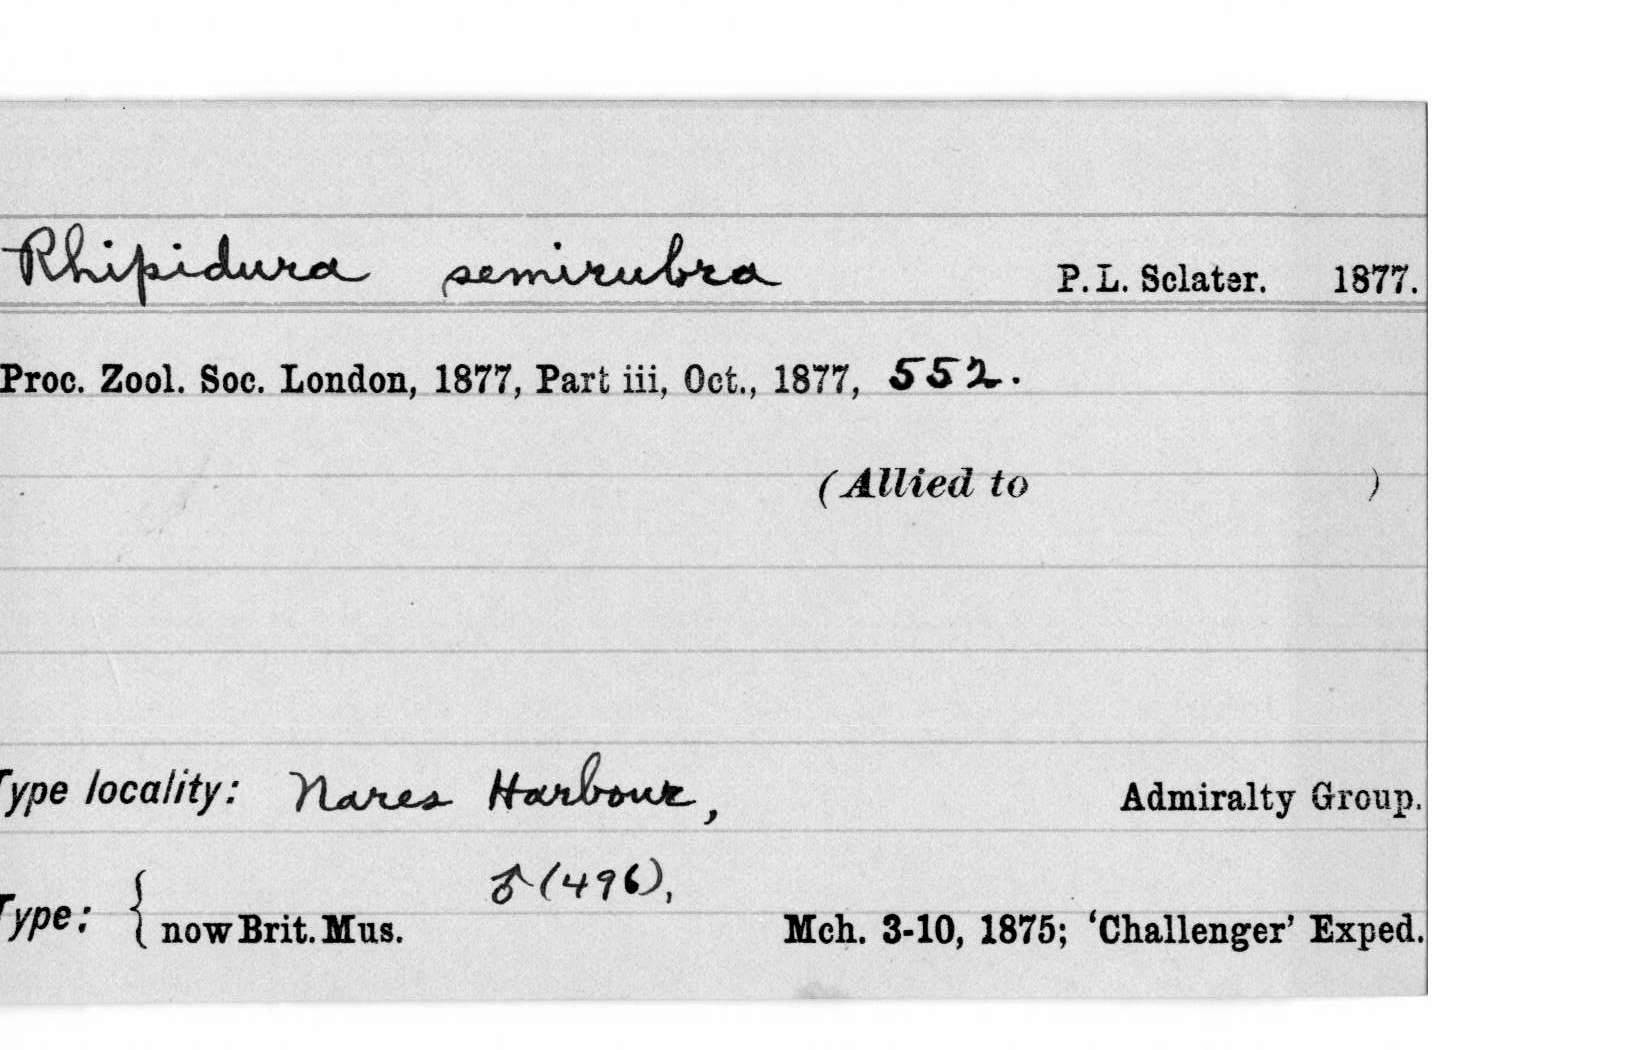 Rhipidura semirubra P.L. Sclater. 1877.
Proc. Zool. Soc. London, 1877, Part iii, Oct., 1877, 552.
(Allied to )
Type locality: Nares Harbour, Admiralty Group.
♂(496),
Type: { now Brit. Mus. Mch. 3-10, 1875; 'Challenger' Exped.